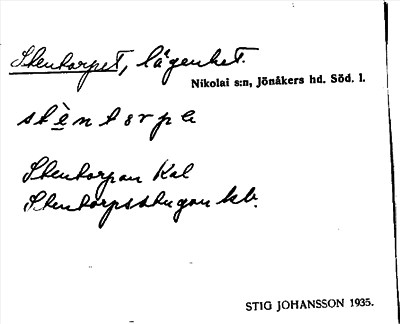 Stentorpet, lägenhet.
Nikolai s:n, Jönåkers hd. Söd. l.
stèntorpe
Stentorpan Kal
Stentorpsstugan kb.
STIG JOHANSSON 1935.